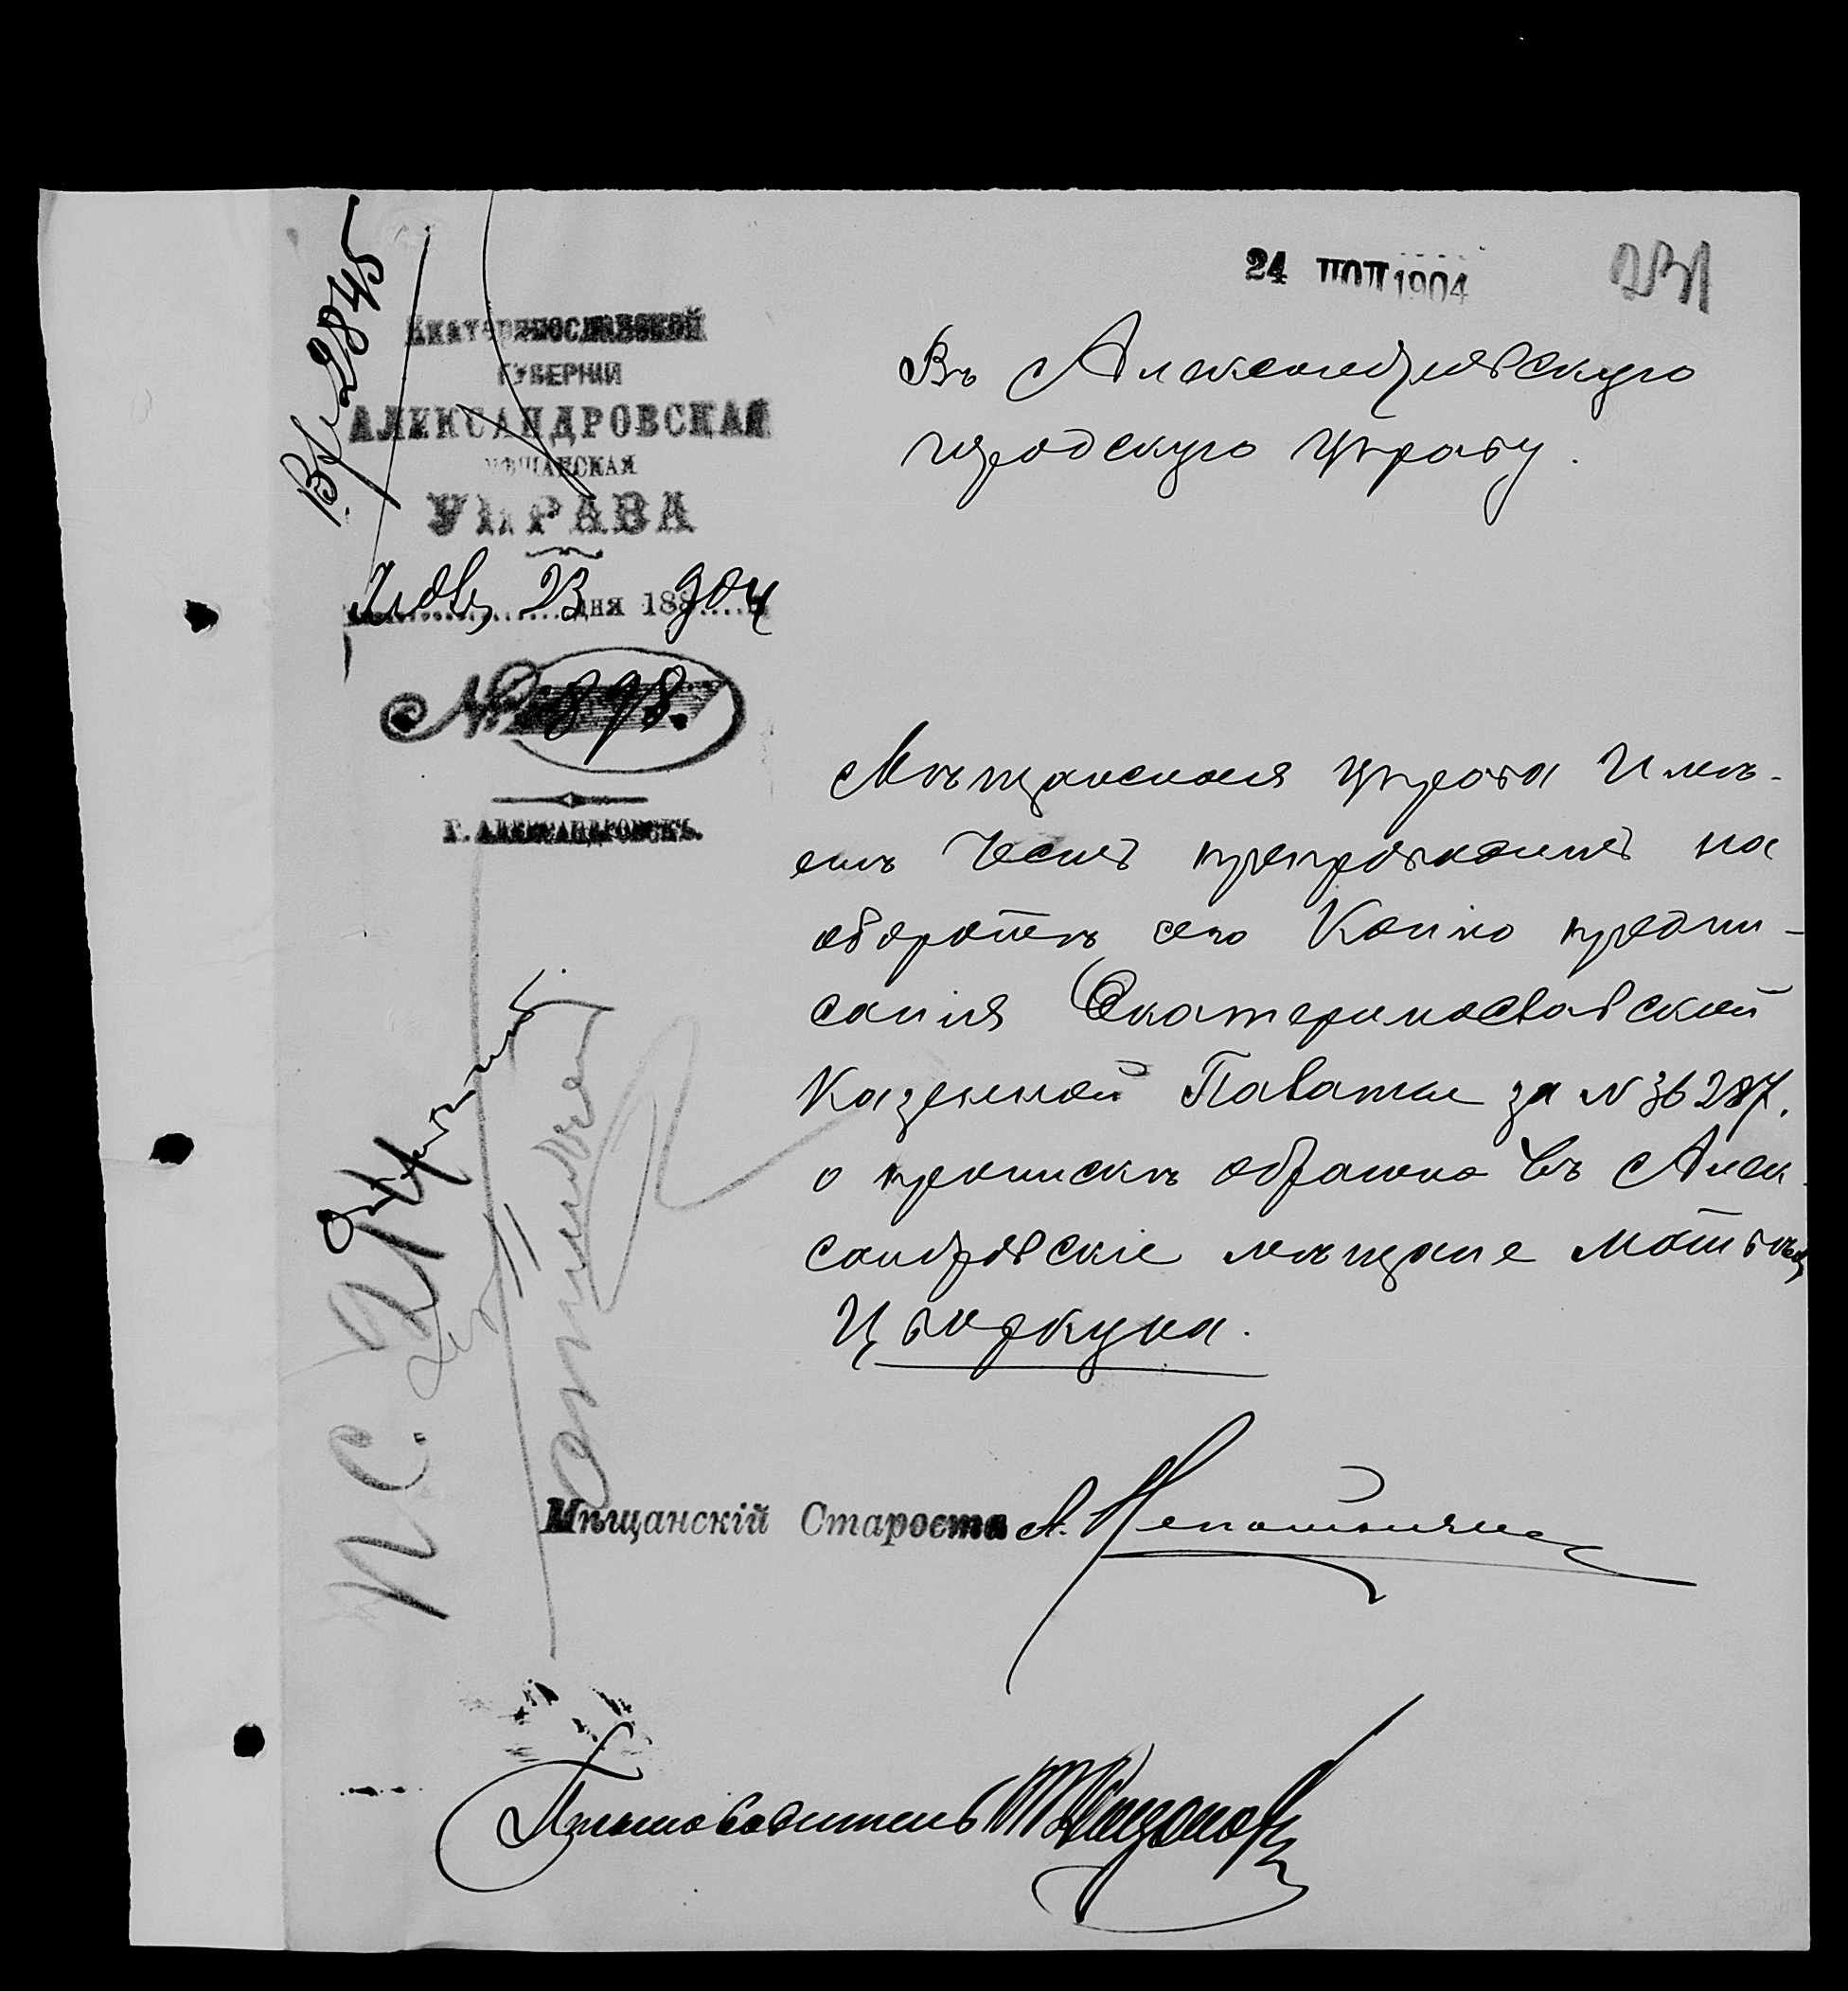 24 ІЮЛ 1904
231
Вх 2845
ЕКАТЕРИНОСЛАВСКОЙ
ГУБЕРНІИ
АЛЕКСАНДРОВСКАЯ
МѢЩАНСКАЯ
УПРАВА
Іюля 23 дня 188 904
№ 898.
Г. АЛЕКСАНДРОВСКЪ.
Въ Александровскую
городскую Управу.
Мѣщанская управа Имѣ-
етъ Честь препроводить на
оборотѣ сего Копію предпи-
санія Екатеринославской
Казенной Палаты за № 36287.
о припискѣ обратно въ Алек-
сандровскіе мѣщане Матвѣя
Цвиркуна.
Н.С. 24
Мѣщанскій Староста А.
Письмоводитель